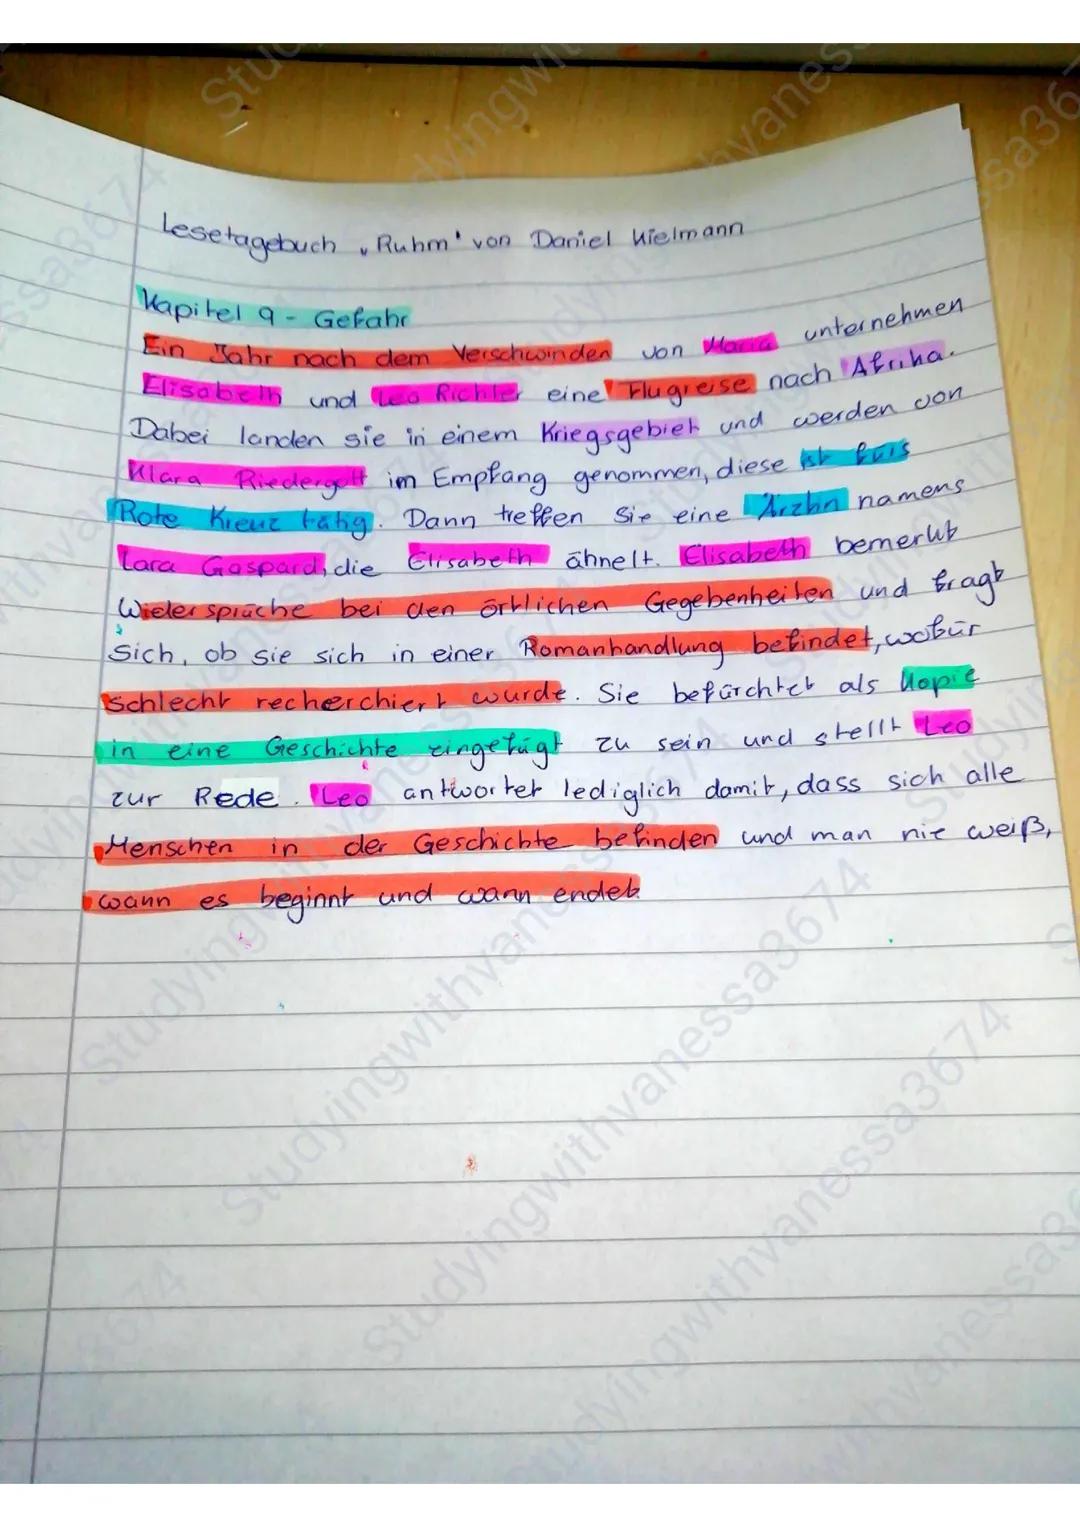 Lesetagebuch „Ruhm" von Daniel Kielmann
Kapitel 9 - Gefahr
Ein Jahr nach dem Verschwinden von Maria unternehmen
Elisabeth und Leo Richter eine Flugreise nach Afrika.
Dabei landen sie in einem Kriegsgebiet und werden von
Klara Riedergott im Empfang genommen, diese ist fürs
Rote Kreuz tätig. Dann treffen Sie eine Ärztin namens
Lara Gaspard, die Elisabeth ähnelt. Elisabeth bemerkt
Widersprüche bei den örtlichen Gegebenheiten und fragt
sich, ob sie sich in einer Romanhandlung befindet, wofür
schlecht recherchiert wurde. Sie befürchtet als Kopie
in eine Geschichte eingefügt zu sein und stellt Leo
zur Rede. Leo antwortet lediglich damit, dass sich alle
Menschen in der Geschichte befinden und man nie weiß,
wann es beginnt und wann endet.
Studyingwithvanessa3674